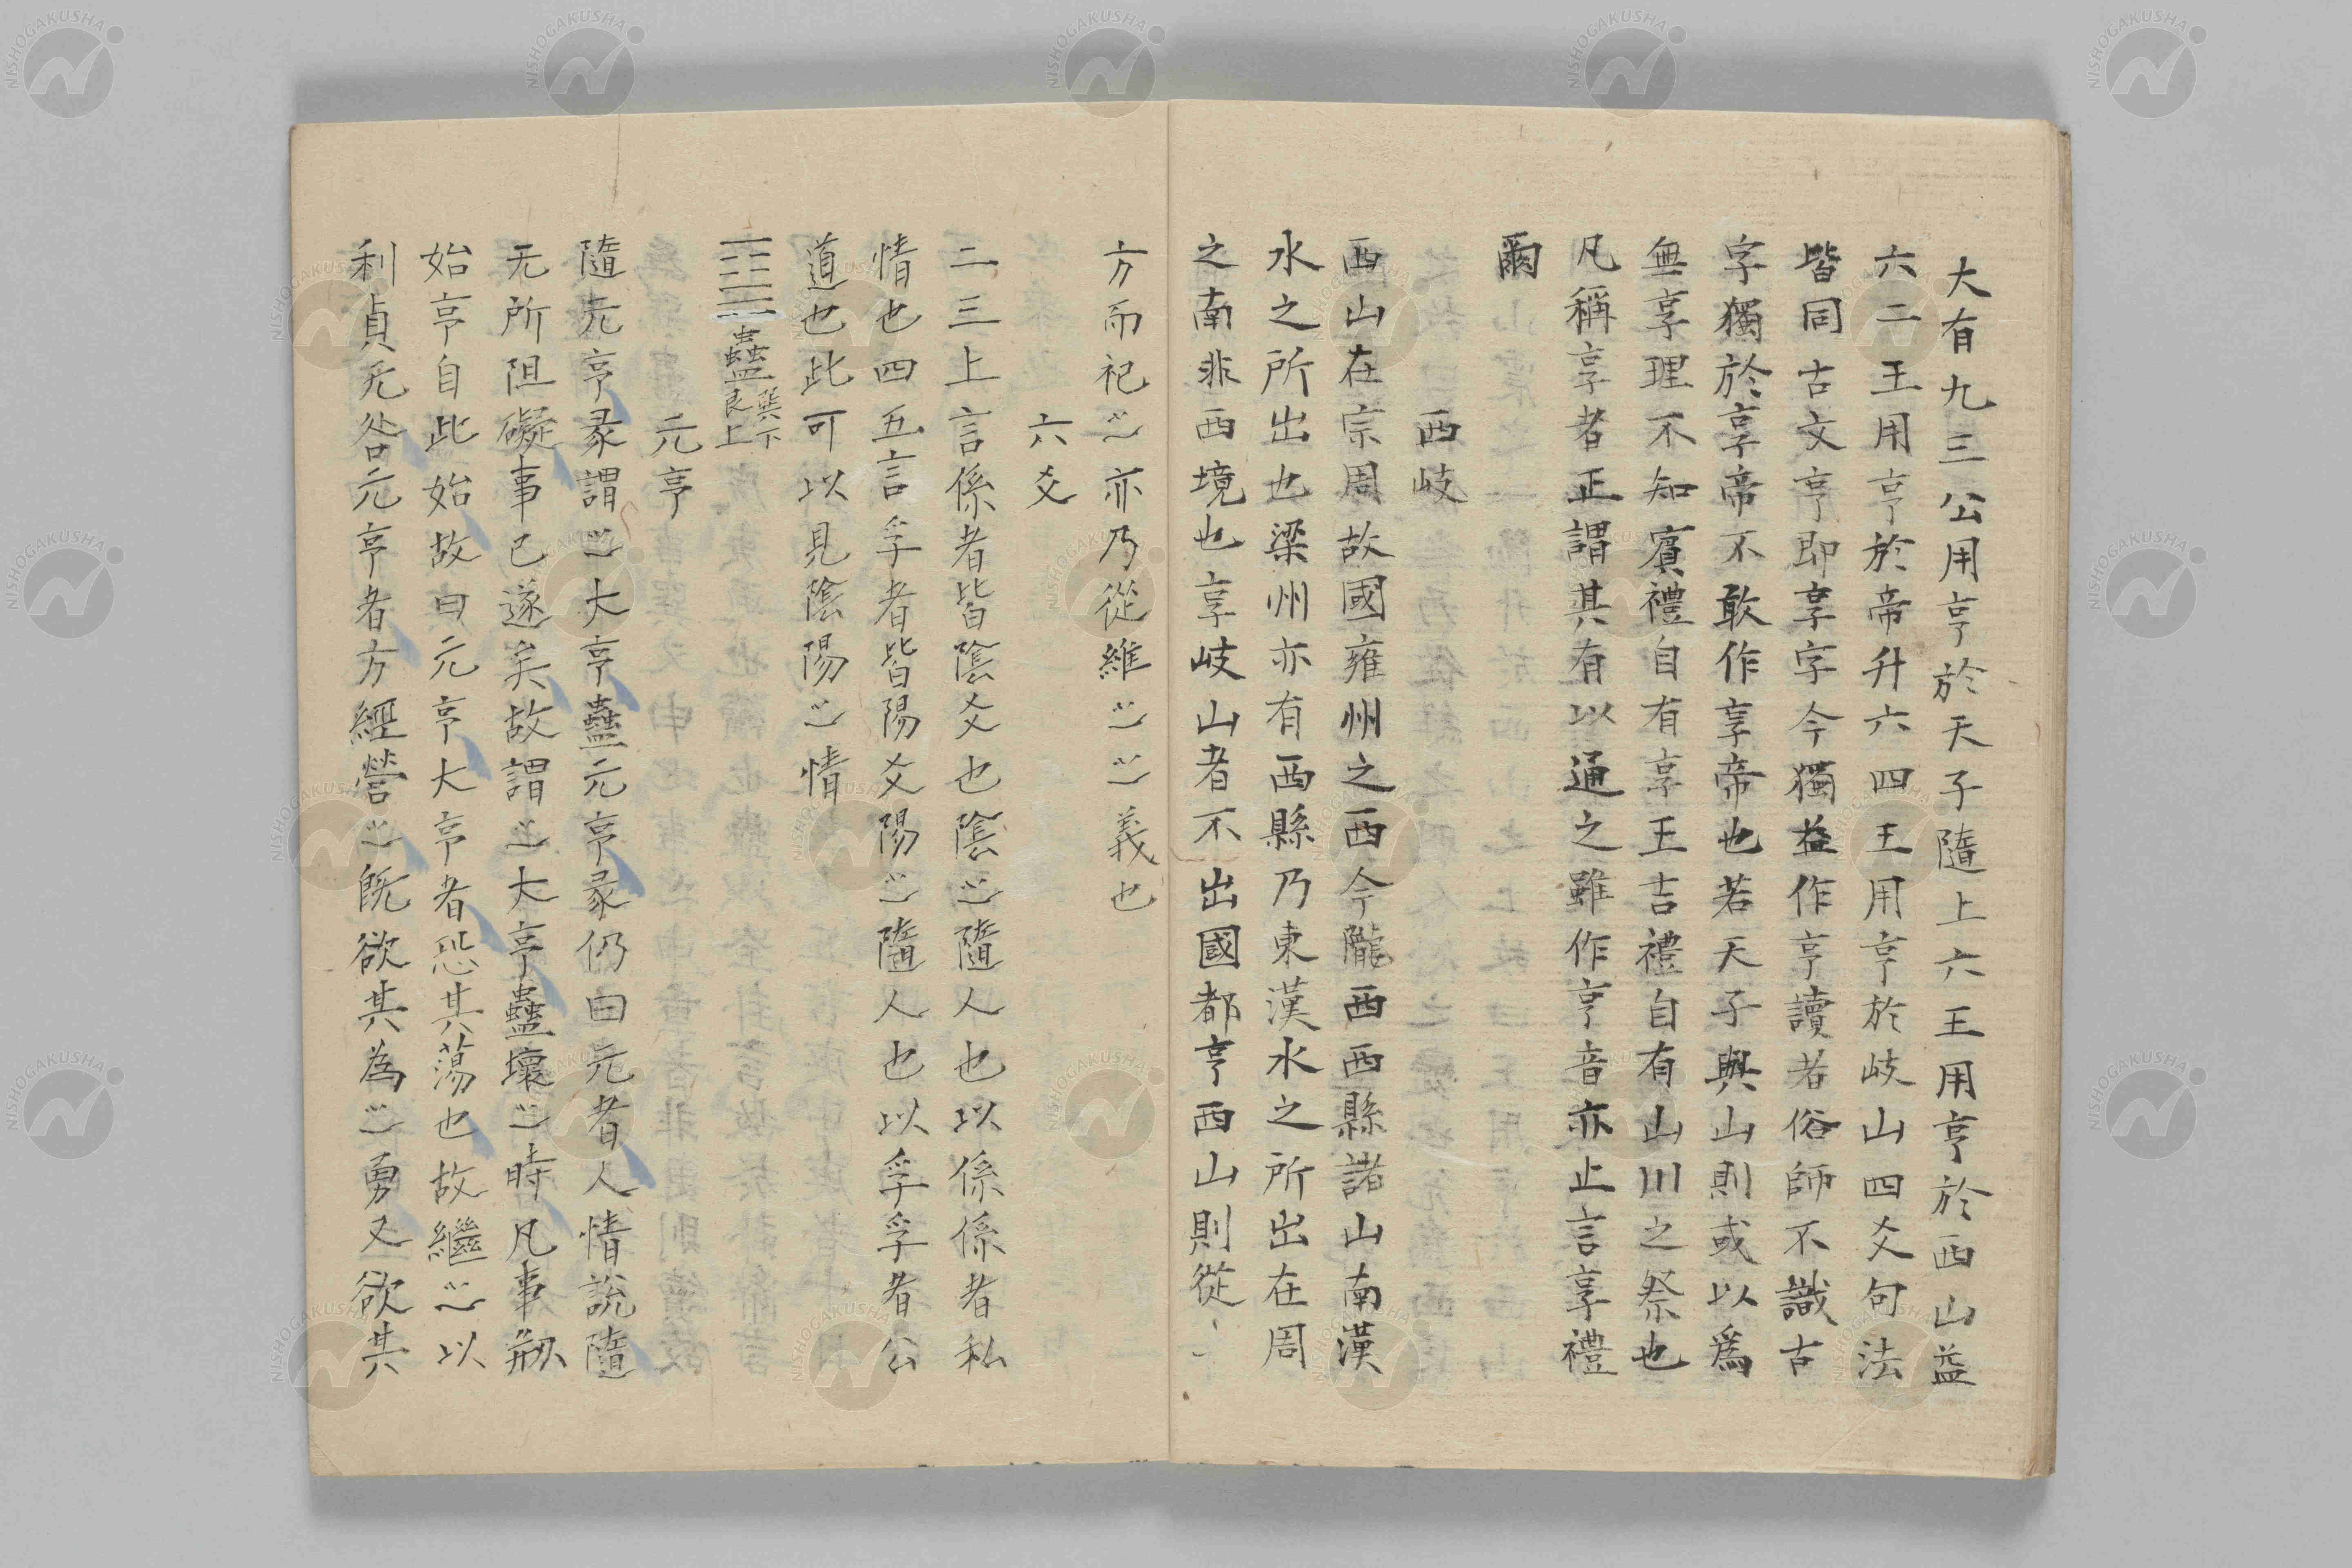 大有九三公用亨於天子隨上六王用亨於西山益
六二王用亨於帝升六四王用亨於岐山四爻句法
皆同古文亨即享字今獨益作亨讀若俗師不識古
字獨於享帝不敢作享帝也若天子與山則或以爲
無享理不知賓禮自有享王吉禮自有山川之祭也
凡稱享者正謂其有以通之雖作亨音亦止言享禮
爾
西岐
西山在宗周故國雍州之西今隴西西縣諸山南漢
水之所出也梁州亦有西縣乃東漢水之所出在周
之南非西境也享岐山者不出國都亨西山則從
方而祀〻亦乃從維〻〻義也
六爻
二三上言係者皆陰爻也陰〻隨人也以係係者私
情也四五言孚者皆陽爻陽〻隨人也以孚孚者公
道也此可以見陰陽〻情
䷑蠱巽下艮上
元亨
隨元亨彖謂〻大亨蠱元亨彖仍曰元者人情說隨
无所阻礙事已遂矣故謂〻大亨蠱壞〻時凡事剏
始亨自此始故曰元亨大亨者恐其蕩也故繼〻以
利貞无咎元亨者方經營〻既欲其為〻勇又欲其
NISHOGAKUSHA